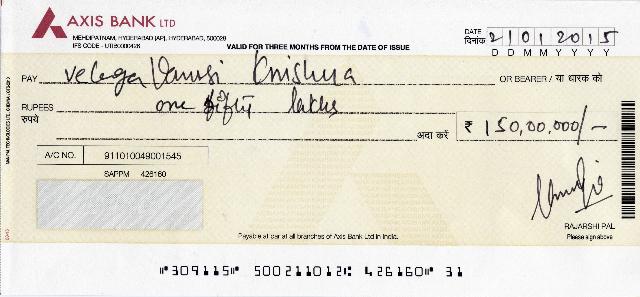 AXIS BANK LTD
MEHDIPATNAM, HYDERABAD [AP], HYDERABAD, 500028
IFS CODE - UTIB0000426
VALID FOR THREE MONTHS FROM THE DATE OF ISSUE
DATE
दिनांक 2 1 0 1 2 0 1 5
D D M M Y Y Y Y
PAY Velaga Vamsi Krishna OR BEARER / या धारक को
RUPEES one fifty lakhs
रुपये
अदा करें ₹ 150,00,000/-
A/C NO. 911010049001545
SAPPM 426160
RAJARSHI PAL
Please sign above
Payable at par at all branches of Axis Bank Ltd in India.
⑈309115⑈ 500211012⑆ 426160⑈ 31